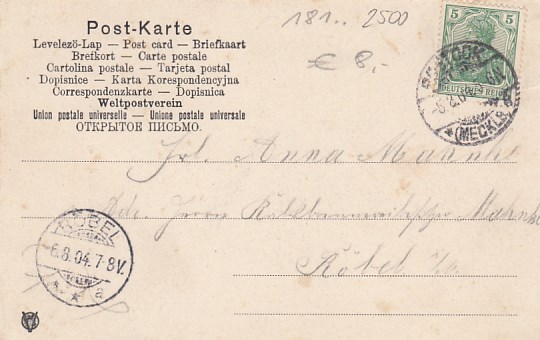 Post-Karte
Levelező-Lap — Post card — Briefkaart
Brefkort — Carte postale
Cartolina postale — Tarjeta postal
Dopisnice — Karta Korespondencyjna
Correspondenzkarte — Dopisnica
Weltpostverein
Union postale universelle — Unione postale universale
ОТКРЫТОЕ ПИСЬМО.
181.. 2500
€ 8,-
5 5
DEUTSCHES REICH
(MECKLB
Frl. Anna
Adr. Herrn
Röbel
RÖBEL
6.8.04.7-8V.
* a